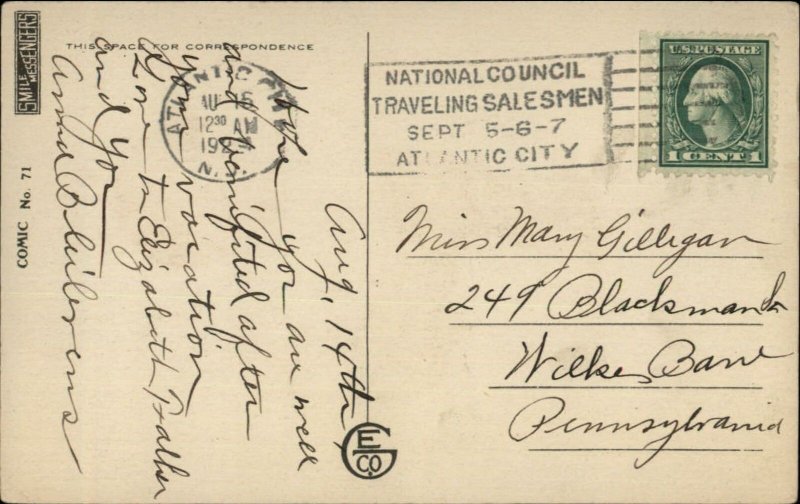 SMILE MESSENGERS
THIS SPACE FOR CORRESPONDENCE
COMIC No. 71
Aug, 14th,
Hope you are well
and benifited after
your vacation
Love to Elizabeth Father
and you
Anna
ATLANTIC CITY
AU
12 30 AM
19
N.J.
NATIONAL COUNCIL
TRAVELING SALESMEN
SEPT 5-6-7
ATLANTIC CITY
U.S. POSTAGE
1 CENT 1
Miss Mary Gilligan
249 Blackman St
Wilkes Barre
Pennsylvania
E CO.